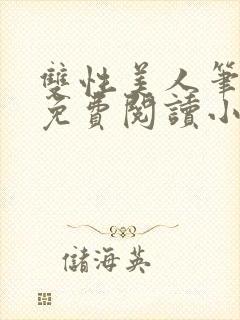 雙性美人筆
免費閱讀小
儲海英